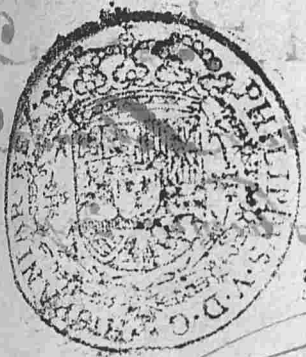 PHILIPUS·V·D·G·HISPANIAR·REX